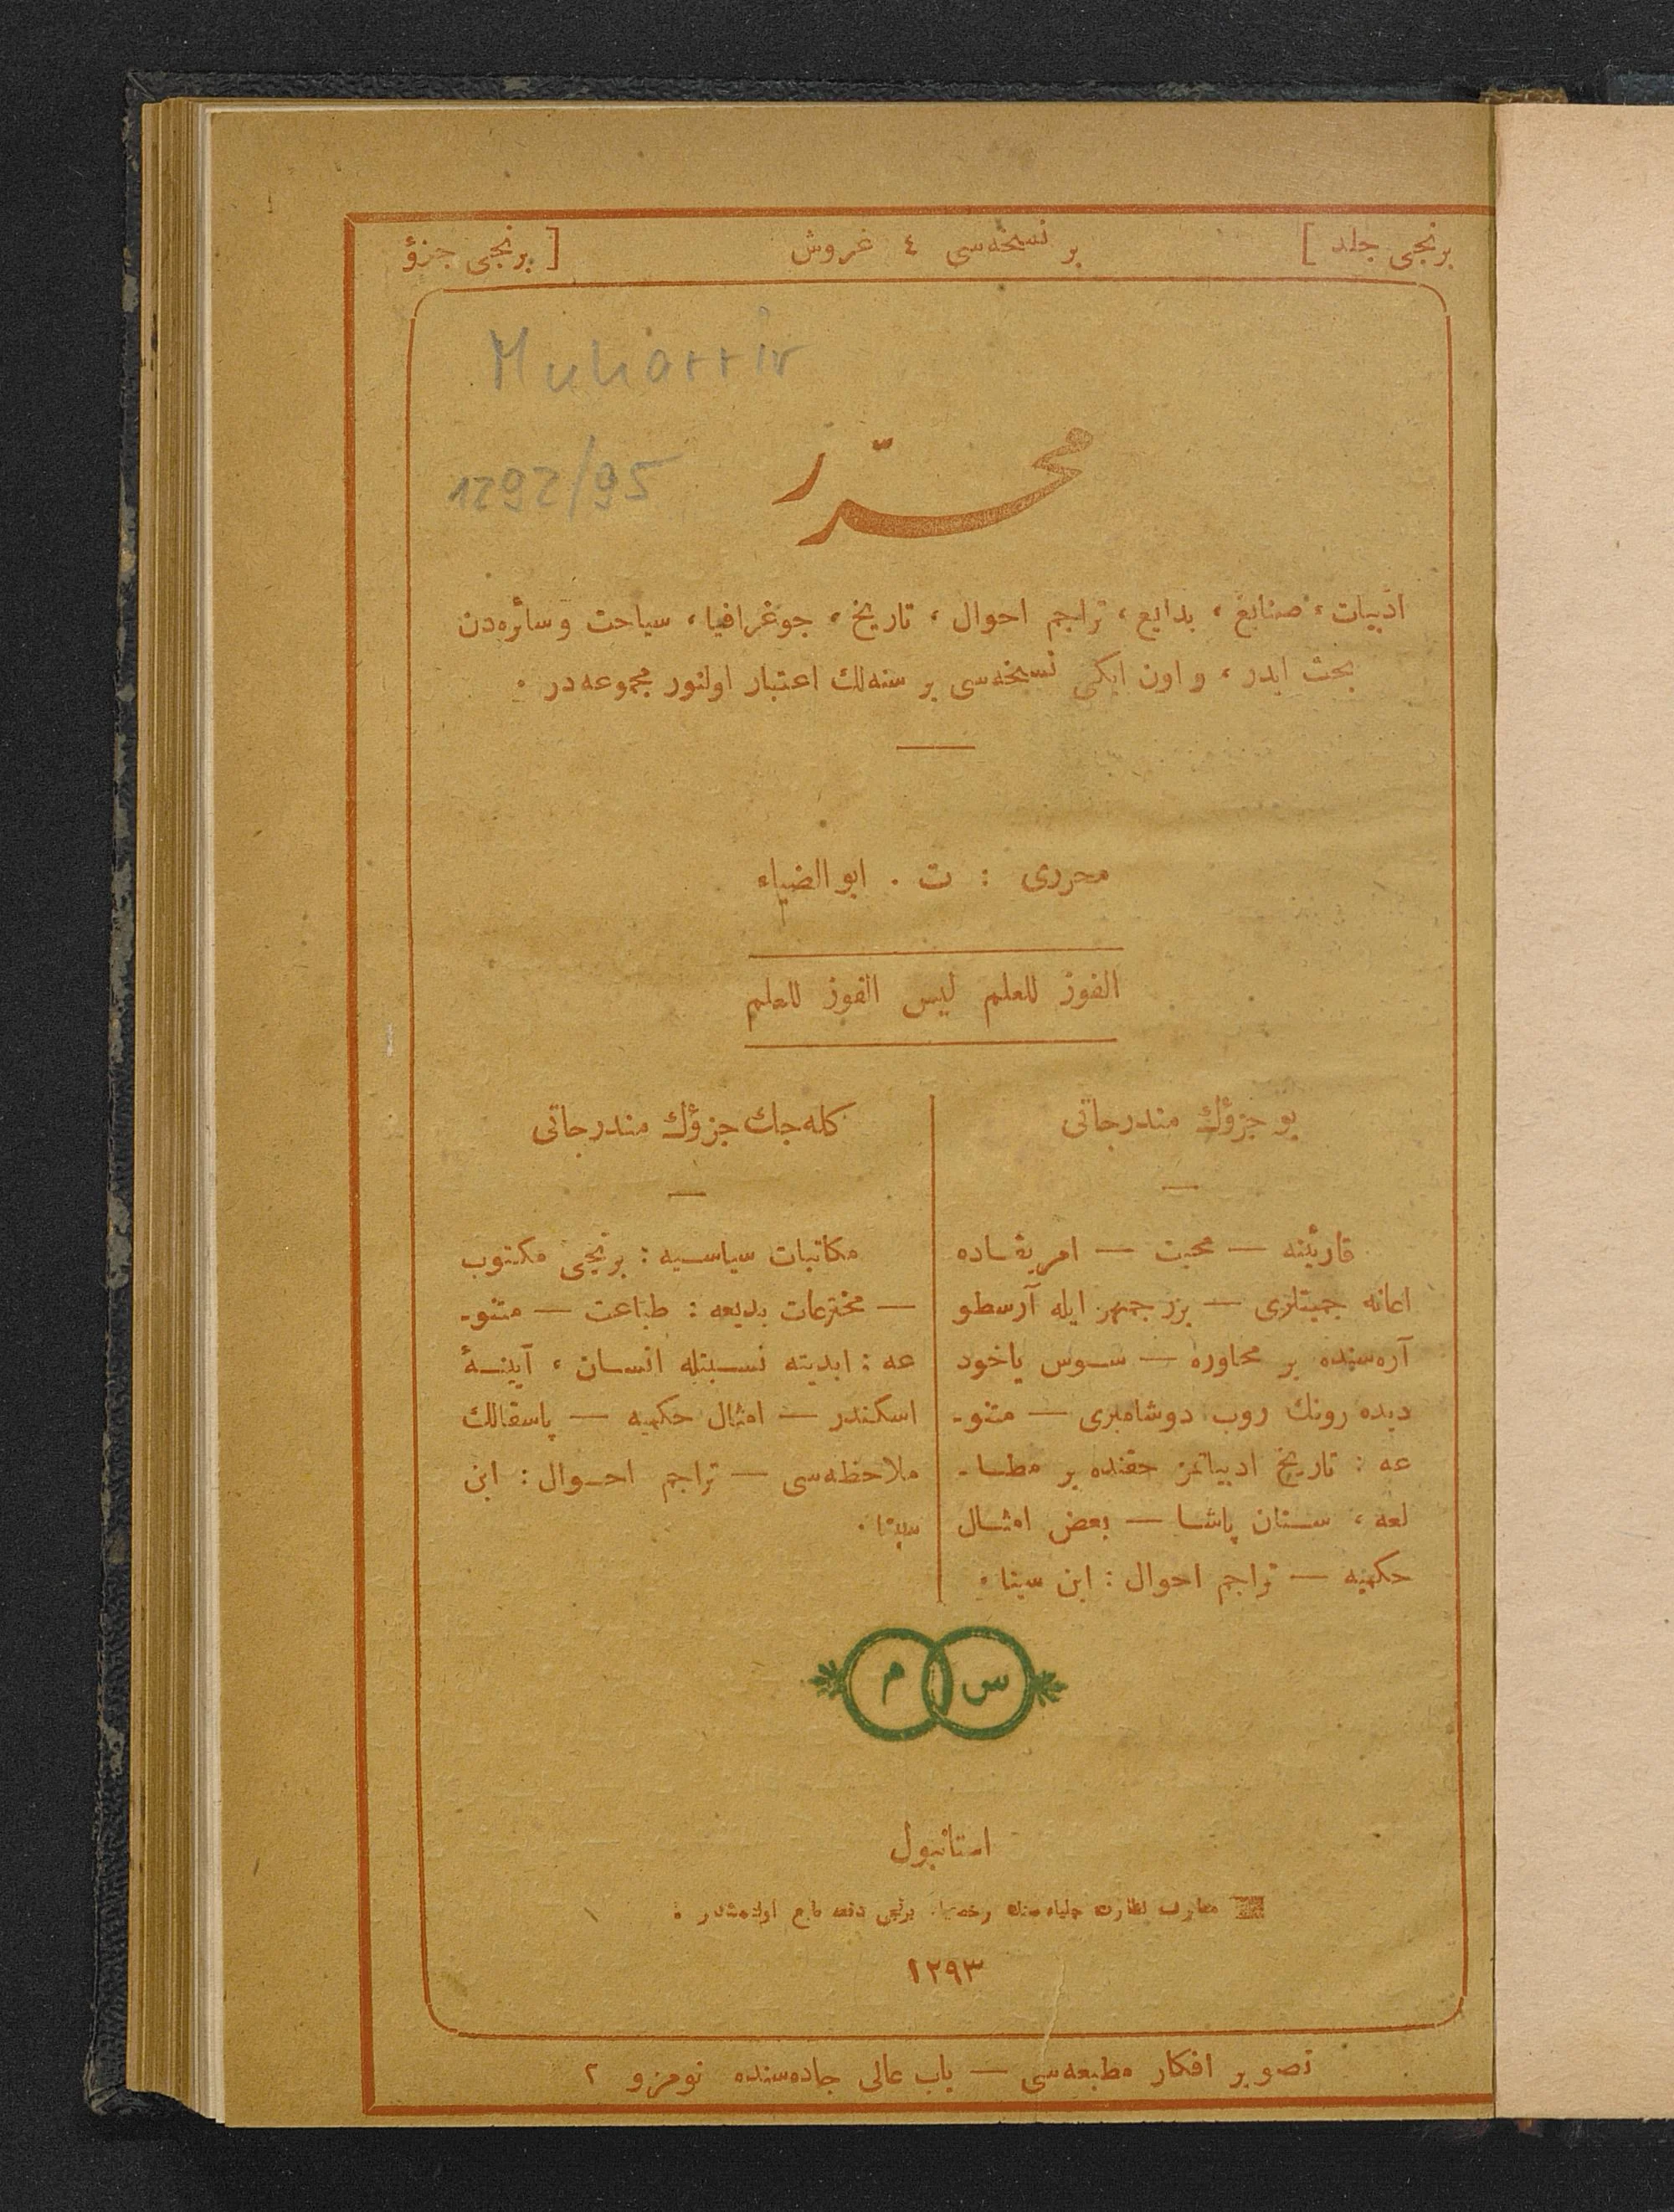 برنجی جلد ]
بر نسخه‌سی ٤ غروش
[ برنجی جزؤ
Muharrir
1292/95
محرّر
ادبیات، صنایع، بدایع، تراجم احوال، تاریخ، جوغرافیا، سیاحت وسائره‌دن
بحث ایدر، و اون ایکی نسخه‌سی بر سنه‌لك اعتبار اولنور مجموعه‌در.
محرری : ت . ابوالضیاء
الفوز للعلم لیس الفوز للعلم
بو جزؤك مندرجاتی
قارئینه — محبت — امریقاده
اعانه جمیتلری — بزرجمهر ایله آرسطو
آره‌سنده بر محاوره — سوس یاخود
دیده‌رونك روب دوشامبری — متنو-
عه : تاریخ ادبیاتمز حقنده بر مطا-
لعه، سنان پاشا — بعض امثال
حکمیه — تراجم احوال : ابن سینا.
کله‌جك جزؤك مندرجاتی
مکاتبات سیاسیه : برنجی مکتوب
— مخترعات بدیعه : طباعت — متنو-
عه : ابدیته نسبتله انسان، آیینۀ
اسکندر — امثال حکمیه — پاسقالك
ملاحظه‌سی — تراجم احوال : ابن
سینا.
س م
استانبول
معارف نظارت جلیله‌سنك برنجی دفعه طبع اولنمشدر.
١٢٩٣
تصویر افکار مطبعه‌سی — باب عالی جاده‌سنده نومرو ٢